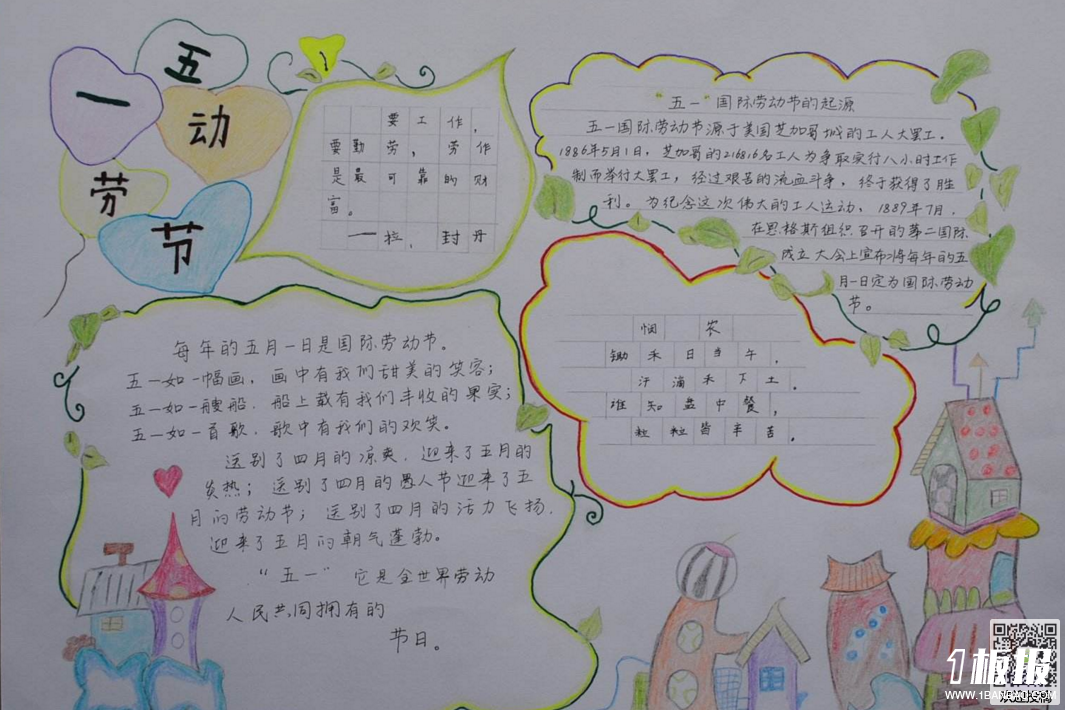 五
一
动
劳
节
要工作，
要勤劳，劳作
是最可靠的财
富。
一拉，封丹
“五一“国际劳动节的起源
五一国际劳动节源于美国芝加哥城的工人大罢工.
1886年5月1日，芝加哥的216816名工人为争取实行八小时工作
制而举行大罢工，经过艰苦的流血斗争，终于获得了胜
利。为纪念这次伟大的工人运动、1889年7月，
在恩格斯组织召开的第二国际
成立大会上宣布将每年的五
月一日定为国际劳动
节。
悯农
锄禾日当午，
汗滴禾下土。
谁知盘中餐，
粒粒皆辛苦。
每年的五月一日是国际劳动节。
五一如一幅画，画中有我们甜美的笑容；
五一如一艘船．船上载有我们丰收的果实；
五一如一首歌．歌中有我们的欢笑。
送别了四月的凉爽．迎来了五月的
炎热；送别了四月的愚人节迎来了五
月的劳动节；送别了四月的活力飞扬．
迎来了五月的朝气蓬勃。
“五一”它是全世界劳动
人民共同拥有的
节日。
1板报
WWW.1BANBAO.COM
欢迎投稿